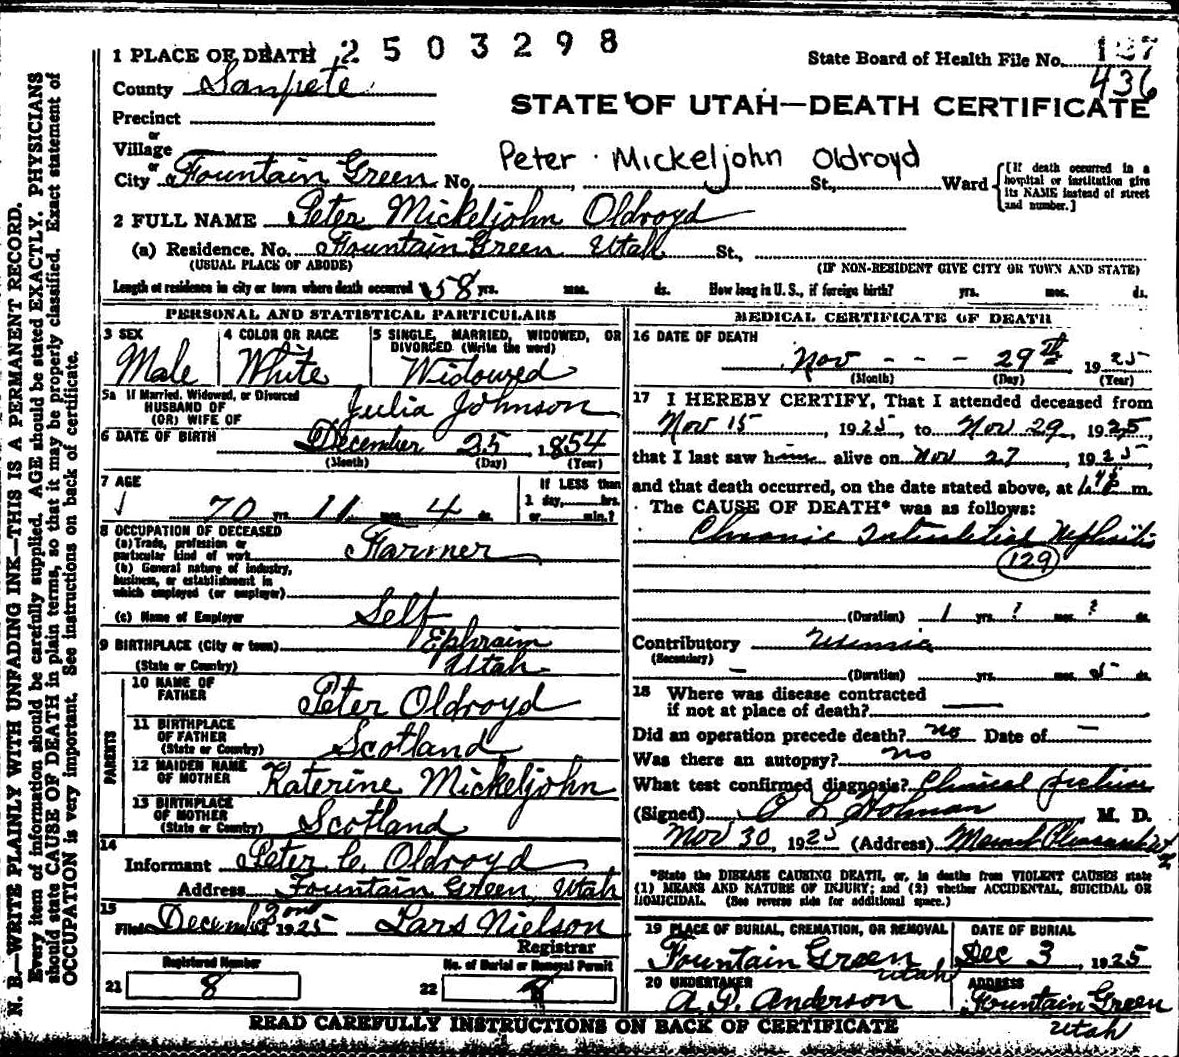 N. B.—WRITE PLAINLY WITH UNFADING INK—THIS IS A PERMANENT RECORD.
Every item of information should be carefully supplied. AGE should be stated EXACTLY. PHYSICIANS
should state CAUSE OF DEATH in plain terms, so that it may be properly classified. Exact statement of
OCCUPATION is very important. See instructions on back of certificate.
1 PLACE OF DEATH 2503298
State Board of Health File No. 127
436
County Sanpete
STATE OF UTAH—DEATH CERTIFICATE
Precinct
or
Village
Peter Mickeljohn Oldroyd
or
City Fountain Green No. St., Ward
[If death occurred in a
hospital or institution give
its NAME instead of street
and number.]
2 FULL NAME Peter Mickeljohn Oldroyd
(a) Residence. No. Fountain Green Utah St.,
(USUAL PLACE OF ABODE) (IF NON-RESIDENT GIVE CITY OR TOWN AND STATE)
Length of residence in city or town where death occurred 58 yrs. mos. ds. How long in U. S., if foreign birth? yrs. mos. ds.
PERSONAL AND STATISTICAL PARTICULARS
3 SEX 4 COLOR OR RACE 5 SINGLE, MARRIED, WIDOWED, OR
DIVORCED (Write the word)
Male White Widowed
5a If Married, Widowed, or Divorced
HUSBAND OF
(OR) WIFE OF Julia Johnson
6 DATE OF BIRTH December 25 1854
(Month) (Day) (Year)
7 AGE If LESS than
1 day, hrs.
70 yrs. 11 mos. 4 ds. or min.?
8 OCCUPATION OF DECEASED
(a) Trade, profession or
particular kind of work Farmer
(b) General nature of industry,
business, or establishment in
which employed (or employer)
(c) Name of Employer Self
9 BIRTHPLACE (City or town) Ephraim
(State or Country) Utah
PARENTS
10 NAME OF
FATHER Peter Oldroyd
11 BIRTHPLACE
OF FATHER
(State or Country) Scotland
12 MAIDEN NAME
OF MOTHER Katerine Mickeljohn
13 BIRTHPLACE
OF MOTHER
(State or Country) Scotland
14
Informant Peter C. Oldroyd
Address Fountain Green, Utah
15
Filed December 2nd 1925 Lars Nielson
Registrar
Registered Number No. of Burial or Removal Permit
21 8 22
MEDICAL CERTIFICATE OF DEATH
16 DATE OF DEATH
Nov - - - 29th 1925
(Month) (Day) (Year)
17 I HEREBY CERTIFY, That I attended deceased from
Nov 15, 1925, to Nov 29, 1925,
that I last saw him alive on Nov 27, 1925,
and that death occurred, on the date stated above, at m.
The CAUSE OF DEATH* was as follows:
Chronic Interstitial Nephritis
129
(Duration) 1 yrs. ? mos. ? ds.
Contributory Uremia
(Secondary)
— (Duration) yrs. mos. 5 ds.
18 Where was disease contracted
if not at place of death? —
Did an operation precede death? no Date of —
Was there an autopsy? no
What test confirmed diagnosis? Clinical
(Signed) O L Holman M. D.
Nov 30, 1925 (Address) Mount Pleasant Ut
*State the DISEASE CAUSING DEATH, or, in deaths from VIOLENT CAUSES state
(1) MEANS AND NATURE OF INJURY; and (2) whether ACCIDENTAL, SUICIDAL OR
HOMICIDAL. (See reverse side for additional space.)
19 PLACE OF BURIAL, CREMATION, OR REMOVAL DATE OF BURIAL
Fountain Green Utah Dec 3, 1925
20 UNDERTAKER ADDRESS
A. P. Anderson Fountain Green
Utah
READ CAREFULLY INSTRUCTIONS ON BACK OF CERTIFICATE